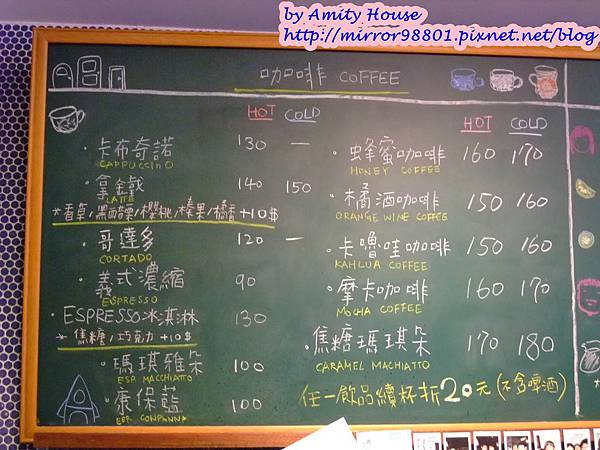 by Amity House
http://mirror98801.pixnet.net/blog
咖啡 COFFEE
HOT COLD
·卡布奇諾 130 —
CAPPUCCINO
·拿鐵 140 150
LATTE
*香草/黑醋栗/櫻桃/榛果/橘香 +10$
·哥達多 120 —
CORTADO
·義式濃縮 90
ESPRESSO
·ESPRESSO冰淇淋 130
*焦糖/巧克力 +10$
·瑪琪雅朵 100
ESP. MACCHIATTO
·康保藍 100
ESP. CONPANNA
HOT COLD
·蜂蜜咖啡 160 170
HONEY COFFEE
·橘酒咖啡 150 160
ORANGE WINE COFFEE
·卡嚕哇咖啡 150 160
KAHLUA COFFEE
·摩卡咖啡 160 170
MOCHA COFFEE
·焦糖瑪琪朵 170 180
CARAMEL MACHIATTO
任一飲品續杯折20元(不含啤酒)